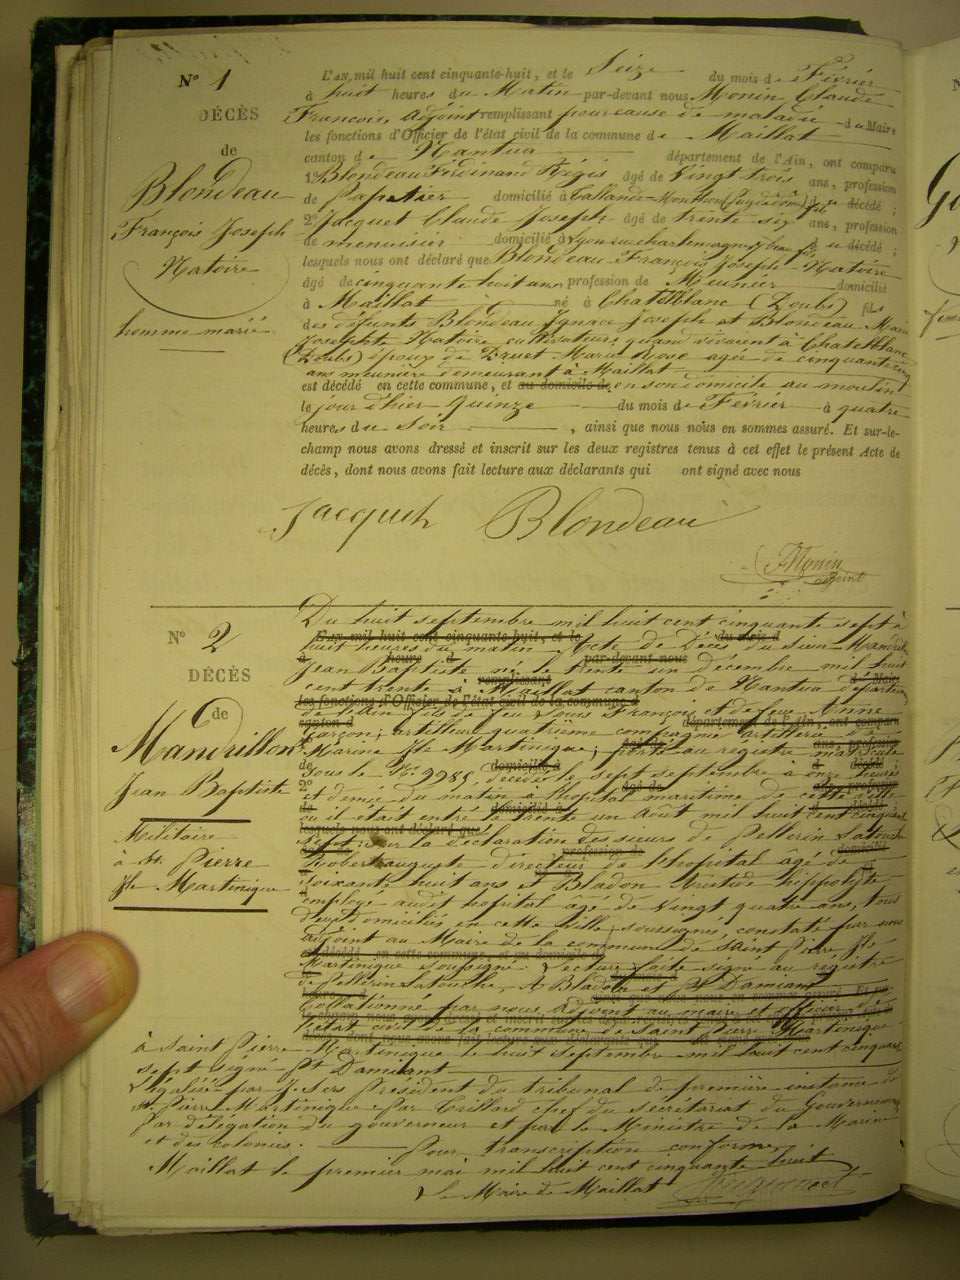 N° 1
DÉCÈS
de
Blondeau
François Joseph
Natoire
homme marié
L'AN, mil huit cent cinquante-huit, et le Seize du mois de Février
à huit heures du Matin par-devant nous Monin Claude
François, adjoint remplissant pour cause de maladie du Maire
les fonctions d'Officier de l'état civil de la commune de Maillat
canton de Nantua département de l'Ain, ont comparu
1° Blondeau Ferdinand Régis âgé de Vingt trois ans, profession
de Papetier domicilié à (Puy de dôme) fils du décédé ;
2° Jacquet Claude Joseph âgé de trente six ans, profession
de menuisier domicilié à Lyon du décédé ;
lesquels nous ont déclaré que Blondeau François Joseph Natoire
âgé de cinquante huit ans profession de Meunier domicilié
à Maillat né à Chatelblanc (Doubs) fils
des défunts Blondeau Ignace Joseph et Blondeau Marie
Josephte Natoire cultivateurs quand vivaient à Chatelblanc
(Doubs) époux de Druet Marie âgée de cinquante cinq
ans meunière demeurant à Maillat
est décédé en cette commune, et au domicile de en son domicile au moulin
le jour d'hier quinze du mois de Février à quatre
heures du Soir , ainsi que nous nous en sommes assuré. Et sur-le-
champ nous avons dressé et inscrit sur les deux registres tenus à cet effet le présent Acte de
décès, dont nous avons fait lecture aux déclarants qui ont signé avec nous
Jacquet Blondeau
Monin
adjoint
N° 2
DÉCÈS
de
Mandrillon
Jean Baptiste
Militaire
à St. Pierre
Martinique
Du huit septembre mil huit cent cinquante sept à
huit heures du matin Acte de Décès du Sieur Mandrillon
Jean Baptiste né le trente un décembre mil huit
cent trente à Maillat canton de Nantua département
de l'Ain fils de feu Louis François et de feue Anne
Garçon, artilleur quatrième compagnie artillerie de
Marine Martinique, porté au registre matricule
sous le N° 2285, décédé le sept septembre à onze heures
et demie du matin à l'hopital maritime de cette ville
où il était entré le trente un août mil huit cent cinquante
sept, sur la déclaration des sieurs de Pellerin Latouche
Robert auguste directeur de l'hopital âgé de
soixante huit ans et Bladon Aristide hippolyte
employé audit hopital âgé de vingt quatre ans, tous
deux domiciliés en cette ville, soussignés, constaté par nous
adjoint au Maire de la commune de Saint Pierre
Martinique soussigné. Lecture faite signé au régistre
de Pellerin Latouche, A Bladon et St Damiant
Collationné par nous adjoint au maire et officier de
l'état civil de la commune de Saint Pierre Martinique
à Saint Pierre Martinique le huit septembre mil huit cent cinquante
sept signé St Damiant
Légalisé par président du tribunal de première instance de
St. Pierre Martinique Par chef du secrétariat du Gouvernement
Par délégation du gouverneur et par le Ministre de la Marine
et des colonies. Pour transcription conforme
Maillat le premier mai mil huit cent cinquante huit
Le Maire de Maillat